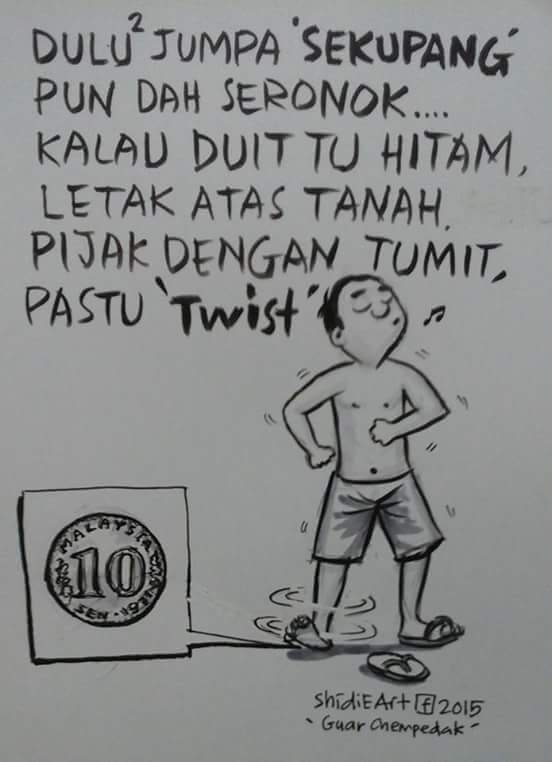 DULU² JUMPA 'SEKUPANG'
PUN DAH SERONOK....
KALAU DUIT TU HITAM,
LETAK ATAS TANAH.
PIJAK DENGAN TUMIT,
PASTU 'Twist'
MALAYSIA
10
SEN
ShidiEArt f 2015
"Guar Chempedak"